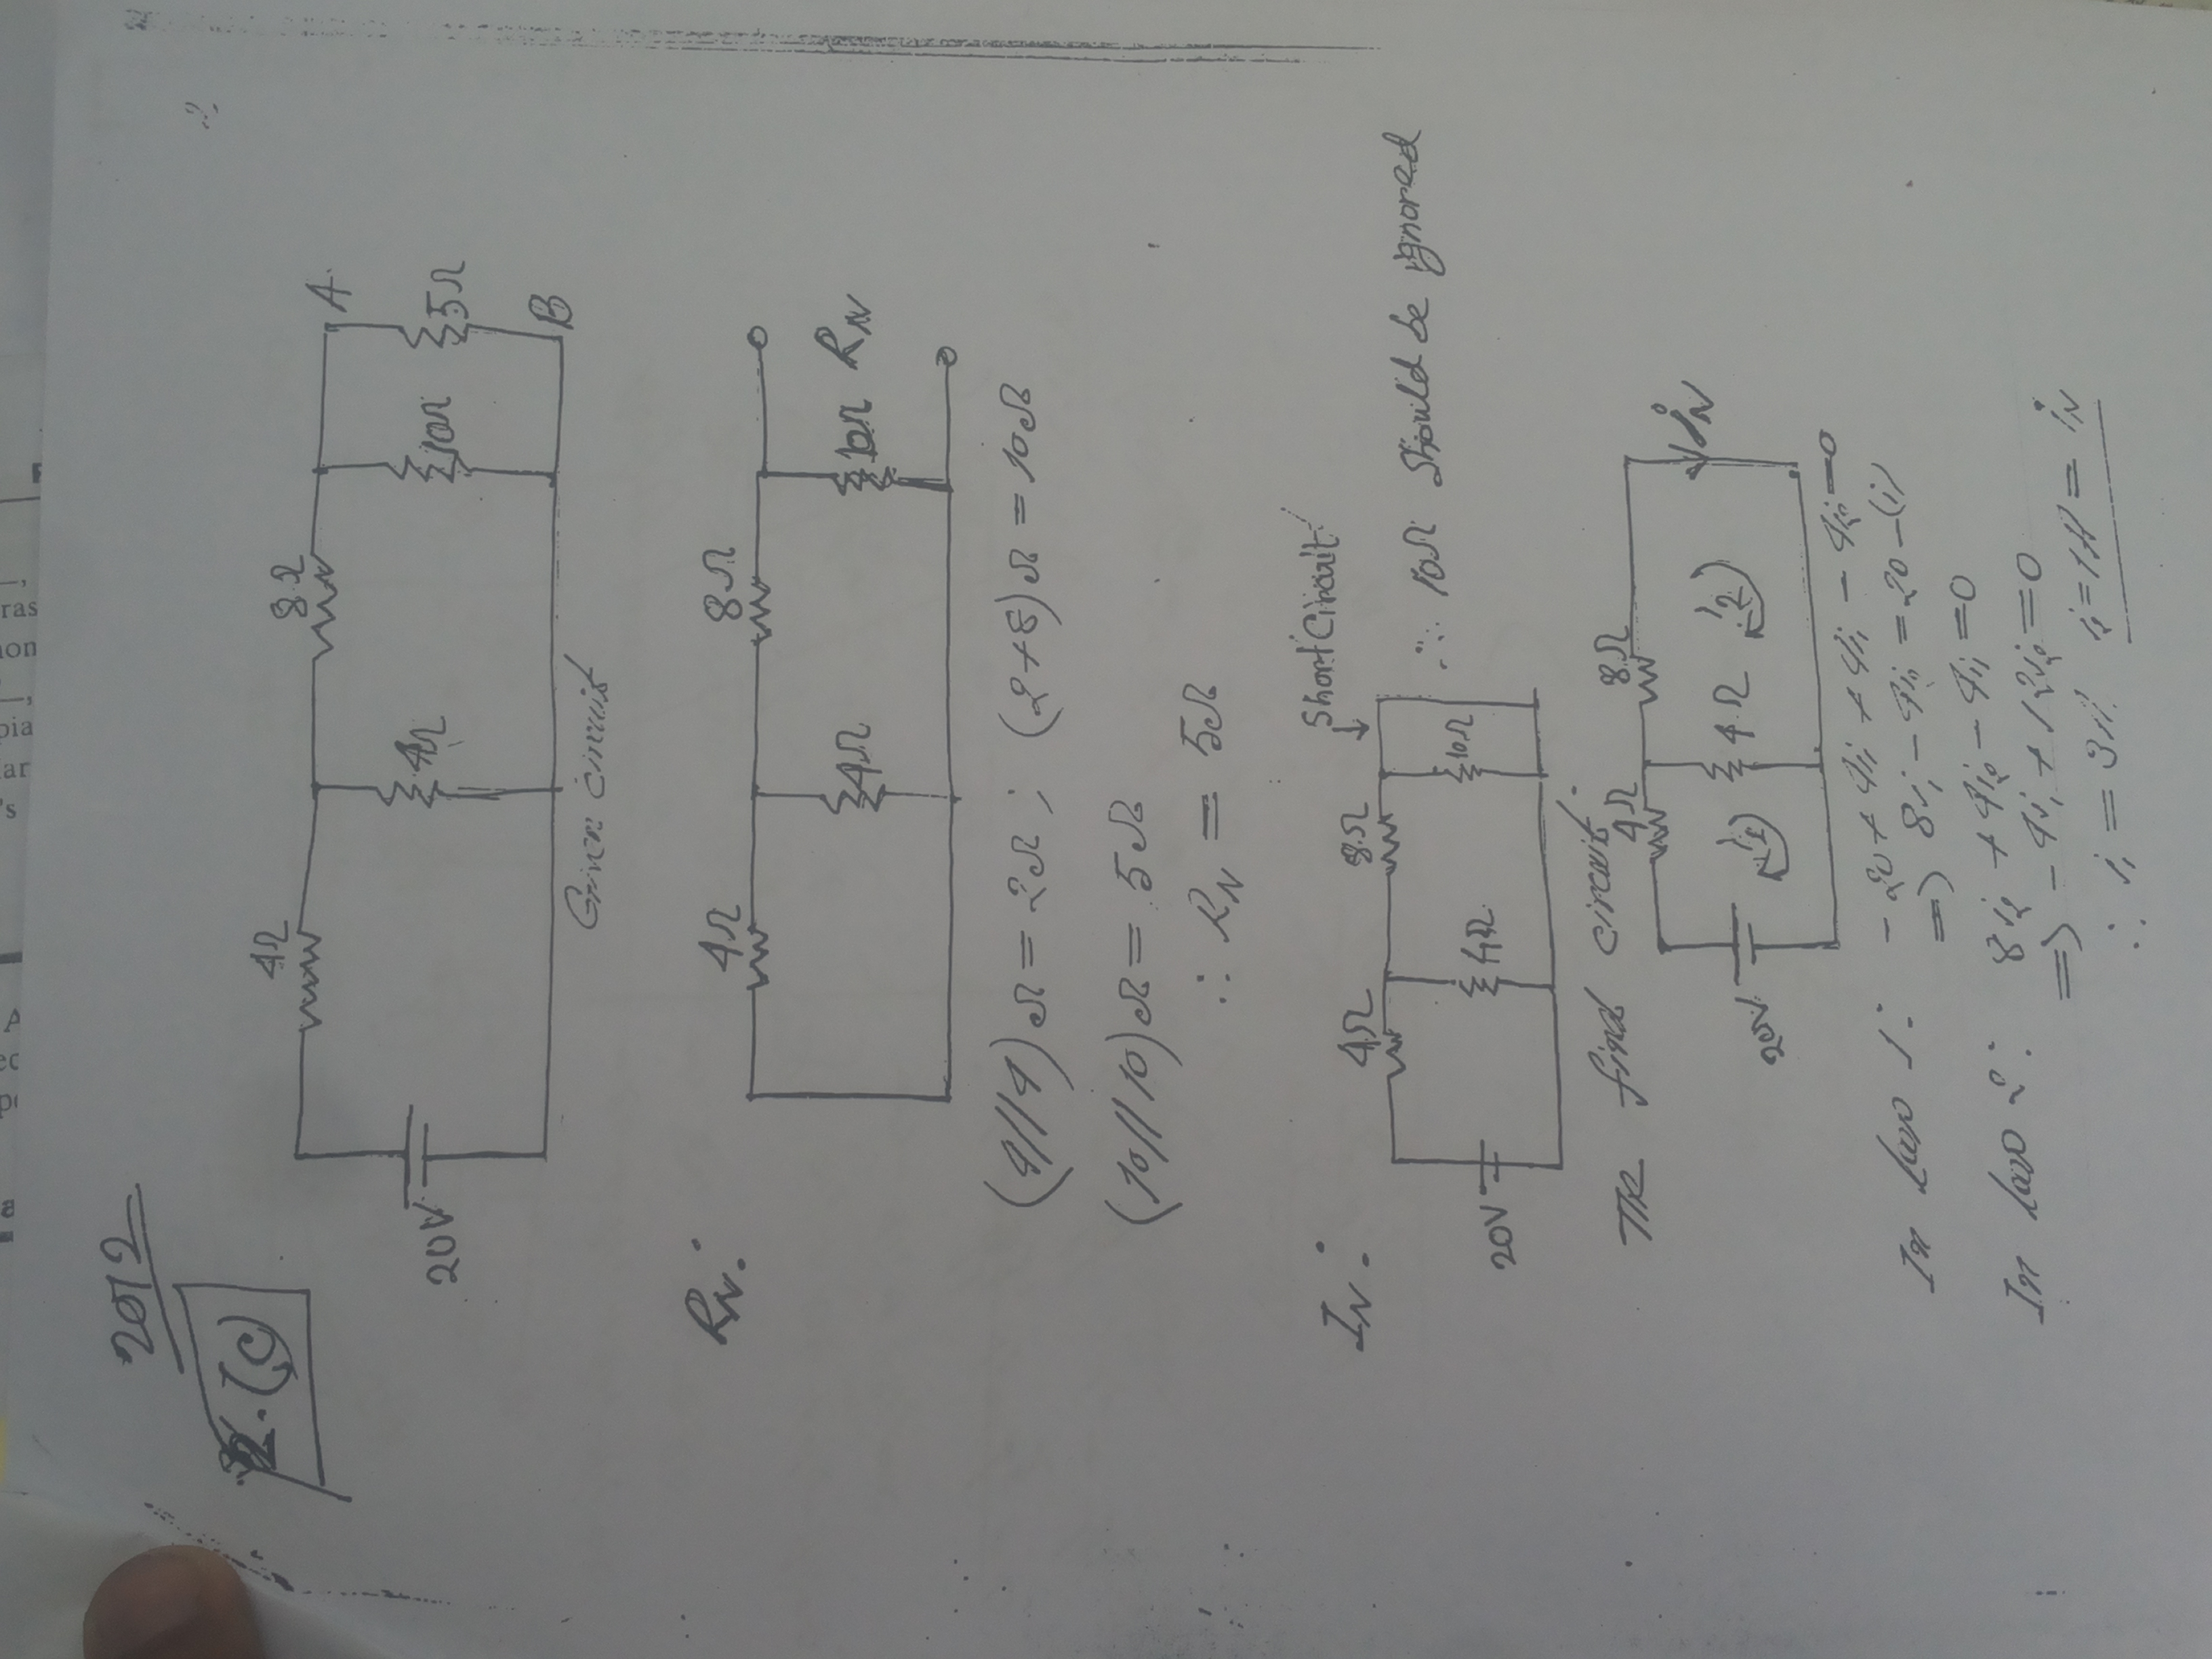 2012
2.(c)
4Ω
8Ω
A
20V
4Ω
10Ω
5Ω
B
Given circuit
RN:
4Ω
8Ω
4Ω
10Ω
RN
(4//4)Ω = 2Ω ; (2+8)Ω = 10Ω
(10//10)Ω = 5Ω
∴ RN = 5Ω
IN:
Short Circuit
4Ω
8Ω
20V
4Ω
10Ω
∴ 10Ω should be ignored
find circuit
4Ω
8Ω
20V
i1
4Ω
i2
iN
In loop 1: -20+4i1+4i1-4i2=0
=> 8i1-4i2=20-(i)
In loop 2: 8i2+4i2-4i1=0
=> -4i1+12i2=0
∴ i1=3A. i2=1A=iN